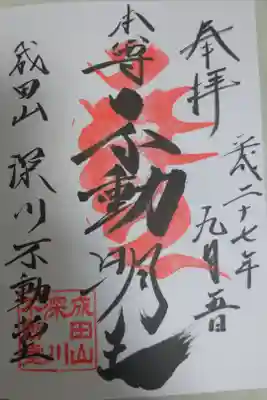 奉拝
平成二十七年
九月五日
本尊
不動明王
成田山 深川不動堂
成田山
深川